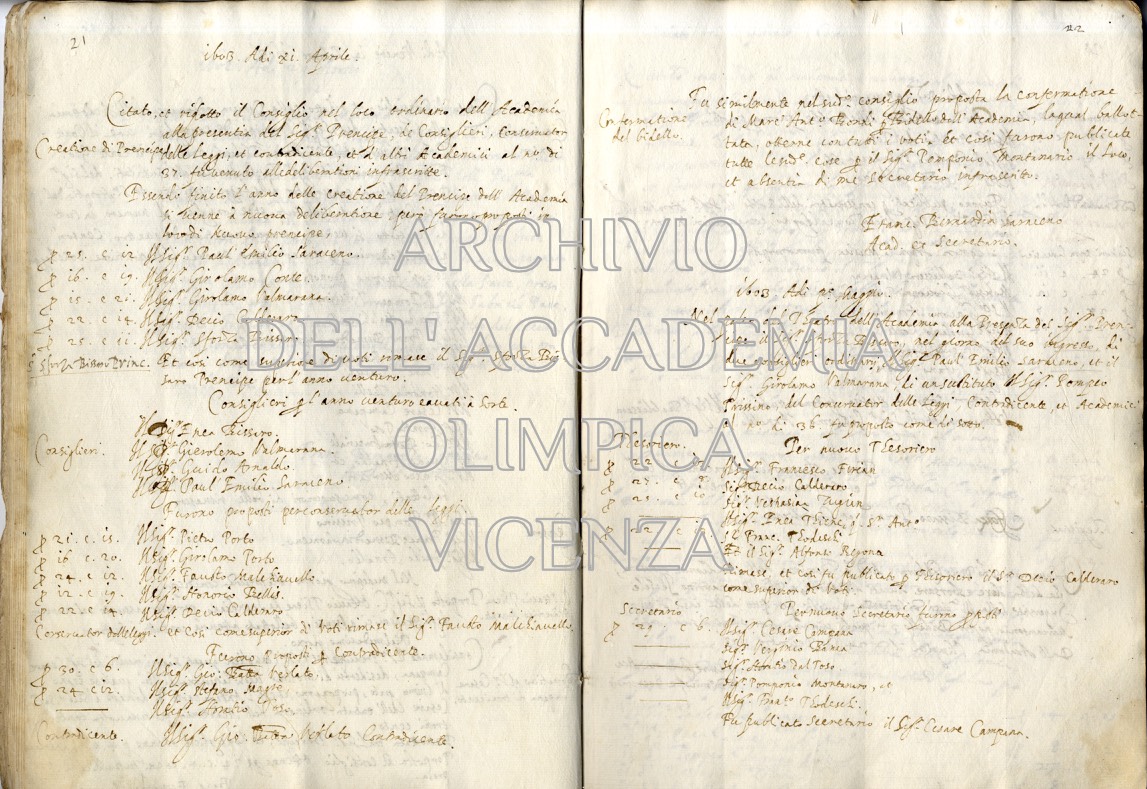 21
1603. Adi xi. Aprile.
Citato, et ridotto il Consiglio nel loco ordinario dell'Academia
alla presentia del Sigr. Prencipe, de Consiglieri, Conservator
Creatione di Prencipe delle leggi, et contradicente, et d'altri Academici al no. di
37. fu venuto alle deliberationi infrascritte.
Essendo finito l'anno della creatione del Prencipe dell'Academia
si venne à nuova deliberatione; però furono proposti in
loco di nuovo prencipe,
p 25. c. 12. Il Sigr. Paul'Emilio Saraceno.
p 16. c 19. Il Sigr. Girolamo Conte.
p 15. c 21. Il Sigr. Girolamo Valmarana.
p 22. c 14. Il Sigr. Decio Calderaro
p 25. c 11. Il Sigr. Sforza Bissaro.
Sr. Sforza Bissaro Princ. Et così come superiore di voti rimase il Sigr. Sforza Bis-
saro Prencipe per l'anno venturo.
Consiglieri p l'anno venturo cavati à sorte.
Il Sigr. Enea Bissaro.
Consiglieri. Il Sigr. Gierolemo Valmarana.
Il Sigr. Guido Arnaldo.
Il Sigr. Paul'Emilio Saraceno
Furono proposti per conservator delle leggi.
p 21. c. 15. Il Sigr. Pietro Porto
p 16. c. 20. Il Sigr. Girolamo Porto
p 24. c 12. Il Sigr. Fausto Malchiavello.
p 12. c 19. Il Sigr. Honorio Bellis.
p 22. c 14. Il Sigr. Decio Calderaro
Conservator delle leggi. et così come superior di voti rimase il Sigr. Fausto Malchiavello
Furono proposti p Contradicente.
p 30. c 6. Il Sigr. Gio: Batta Verlato.
p 24. c 12. Il Sigr. Stefano
Il Sigr. Toso.
Contradicente. Il Sigr. Gio: Batta Verlato Contradicente.
22
Fu similmente nel sudo. consiglio proposta la confermatione
Confermatione di Marc'Anto. Bidello dell'Academia, laqual ballot-
del bidello. tata, ottenne con tutti i voti; Et così furono publicate
tutte le sude. cose p il Sigr. Pomponio Montanaro il loco,
et absentia di me Secretario infrascritto.
Bernardin Saraceno
Acad. Secretario.
1603. Adi Maggio.
Nel del Theatro dell'Academia alla Presenza del Sigr. Pren-
cipe il Sigr. Sforza Bissaro, nel giorno del suo ingresso, di
due consiglieri ordinarij, il Sigr. Paul'Emilio Saraceno, et il
Sigr. Girolamo Valmarana, di un sustituto Il Sigr. Pompeo
Trissino, del Conservator delle leggi, Contradicente, et Academici
al no. di 36. fu proposto come di sotto.
Thesoriero. Per nuovo Thesoriero
p 22. c Il Sigr. Francesco
p 27. c 9. Sigr. Decio Calderaro
p 25. c 10 Sigr.
Il Sigr. Enea Thiene q. Sr. Anto.
p c Sr. Franc. Thodeschi
Et il Sigr. Alfonso Ragona
Rimase, et così fu publicato p Thesoriero il Sr. Decio Calderaro
come superior de voti.
Secretario Per nuovo Secretario furno
p 29. c 6. Il Sigr. Cesare Campana
Sigr.
Sigr. dal Toso.
Sigr. Pomponio Montanaro, et
Il Sigr. Thodeschi.
Fu publicato Secretario il Sigr. Cesare Campana.
ARCHIVIO
DELL'ACCADEMIA
OLIMPICA
VICENZA